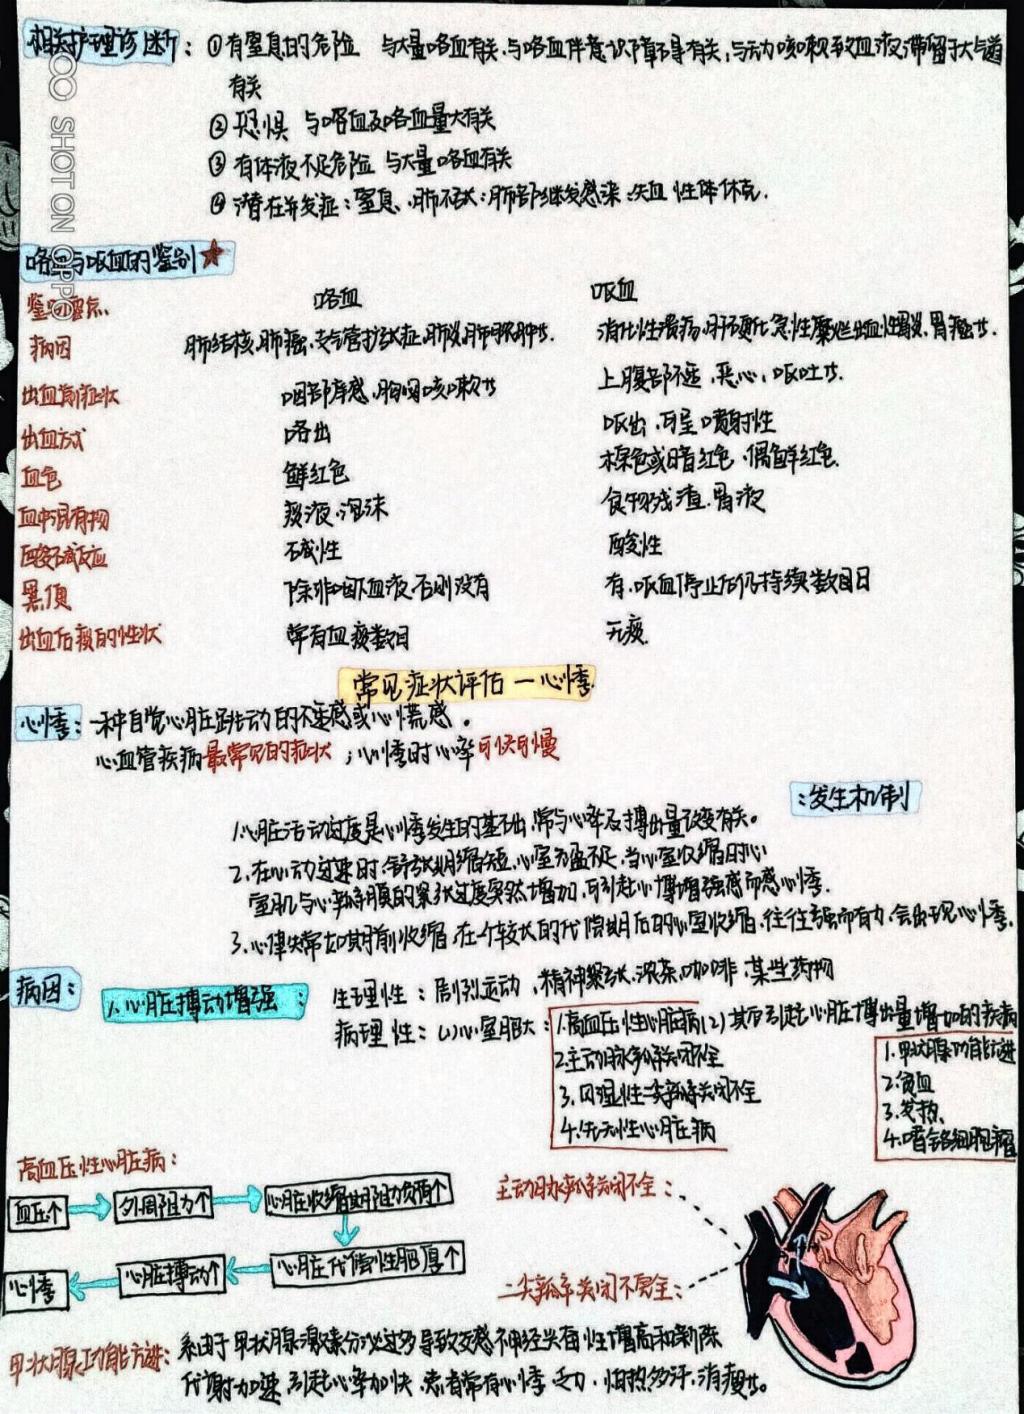 相关护理诊断：①有窒息的危险 与大量咯血有关，与咯血伴意识障碍有关，与无力咳嗽致血液滞留于大气道
有关
②恐惧 与咯血及咯血量大有关
③有体液不足危险 与大量咯血有关
④潜在并发症：窒息、肺不张：肺部继发感染：失血性休克.
咯血与呕血的鉴别★
鉴别要点 咯血 呕血
病因 肺结核、肺癌、支气管扩张症、肺炎、肺脓肿等. 消化性溃疡、肝硬化、急性糜烂出血性胃炎、胃癌等.
出血前症状 咽部痒感、胸闷咳嗽等 上腹部不适、恶心、呕吐等.
出血方式 咯出 呕出、可呈喷射性
血色 鲜红色 棕色或暗红色、偶鲜红色.
血中混有物 痰液、泡沫 食物残渣、胃液
酸碱反应 碱性 酸性
黑便 除非咽下血液、否则没有 有、呕血停止后仍持续数日
出血后痰的性状 常有血痰数日 无痰.
常见症状评估—心悸
心悸：一种自觉心脏跳动的不适感或心慌感。
心血管疾病最常见的症状；心悸时心率可快可慢
：发生机制
1.心脏活动过度是心悸发生的基础，常与心率及搏出量改变有关。
2.在心动过速时，舒张期缩短、心室充盈不足，当心室收缩时心
室肌与心瓣膜的紧张过度突然增加，可引起心搏增强感而感心悸.
3.心律失常如期前收缩，在一个较长的代偿期后的心室收缩，往往强而有力，会出现心悸.
病因： 1.心脏搏动增强： 生理性：剧烈运动、精神紧张、浓茶、咖啡、某些药物
病理性：(1)心室肥大：1.高血压性心脏病 (2)其后引起心脏搏出量增加的疾病
2.主动脉瓣关闭不全 1.甲状腺功能亢进
3.风湿性二尖瓣关闭不全 2.贫血
4.先天性心脏病 3.发热、
4.嗜铬细胞瘤
高血压性心脏病：
血压↑ 外周阻力↑ 心脏收缩期阻力负荷↑
心悸 心脏搏动↑ 心脏代偿性肥厚↑
主动脉瓣关闭不全：
二尖瓣关闭不完全：
甲状腺功能亢进：系由于甲状腺激素分泌过多导致交感神经兴奋性增高和新陈
代谢加速引起心率加快、患者常有心悸、乏力、怕热多汗、消瘦等。
SHOT ON OPPO